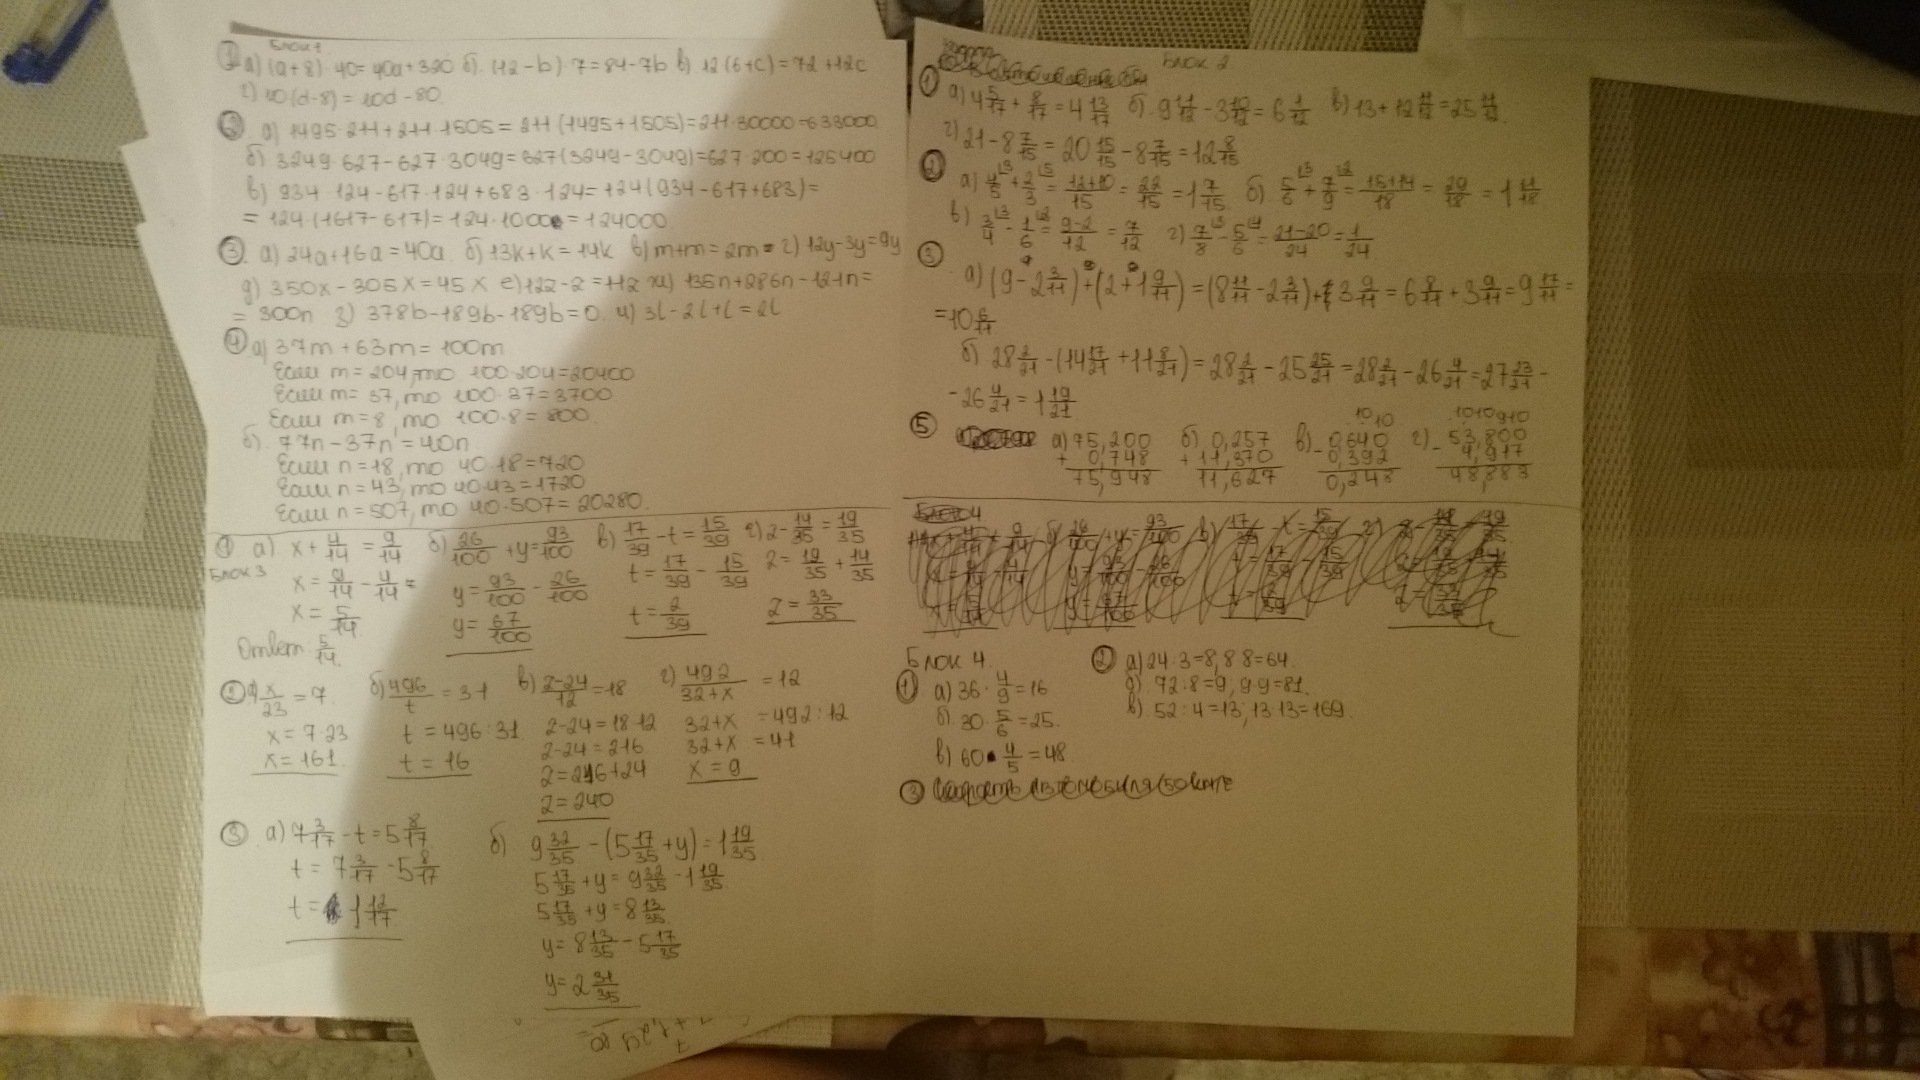 Блок 1
① а) (a+8)·40=40a+320 б). (12-b)·7=84-7b в) 12(6+c)=72+12c
г) 10(d-8)=10d-80.
② а) 1495·211+211·1505=211(1495+1505)=211·30000=633000
б) 3249·627-627·3049=627(3249-3049)=627·200=125400
в) 934·124-617·124+683·124=124(934-617+683)=
=124(1617-617)=124·1000=124000.
③. а) 24a+16a=40a. б) 13k+k=14k в) m+m=2m г) 12y-3y=9y
д) 350x-305x=45x е) 12z-z=11z ж) 135n+286n-121n=
=300n з) 378b-189b-189b=0. и) 3l-2l+l=2l
④ а) 37m+63m=100m
Если m=204, то 100·204=20400
Если m=37, то 100·37=3700
Если m=8, то 100·8=800.
б). 77n-37n=40n.
Если n=18, то 40·18=720
Если n=43, то 40·43=1720
Если n=507, то 40·507=20280.
① а) x+4/14=9/14 б) 26/100+y=93/100 в) 17/39-t=15/39 г) z-14/35=19/35
Блок 3
x=9/14-4/14= y=93/100-26/100 t=17/39-15/39 z=19/35+14/35
x=5/14. y=67/100 t=2/39 z=33/35
Ответ: 5/14.
② а) x/23=7. б) 496/t=31 в) z-24/12=18 г) 492/32+x=12
x=7·23 t=496:31. z-24=18·12 32+x=492:12
x=161. t=16 z-24=216 32+x=41
z=216+24 x=9
z=240
③ а) 7 3/17-t=5 8/17. б) 9 32/35-(5 17/35+y)=1 19/35.
t=7 3/17-5 8/17 5 17/35+y=9 32/35-1 19/35.
t=1 12/17. 5 17/35+y=8 13/35.
y=8 13/35-5 17/35
y=2 31/35
Блок 2
① а) 4 5/17+8/17=4 13/17 б). 9 11/12-3 10/12=6 1/12 в) 13+12 11/12=25 11/12.
г) 21-8 7/15=20 15/15-8 7/15=12 8/15
② а) 4/5+2/3=12+10/15=22/15=1 7/15. б). 5/6+7/9=15+14/18=29/18=1 11/18.
в) 3/4-1/6=9-2/12=7/12 г) 7/8-5/6=21-20/24=1/24
③
а) (9-2 3/11)+(2+1 9/11)=(8 11/11-2 3/11)+3 9/11=6 8/11+3 9/11=9 17/11=
=10 6/11
б) 28 2/21-(14 17/21+11 8/21)=28 2/21-25 25/21=28 2/21-26 4/21=27 23/21-
-26 4/21=1 19/21
10 10 10 10 9 10
⑤ а) 75,200 б) 0,257 в) 0,640 г) 53,800
+ 0,748 + 11,370 - 0,392 - 4,917
75,948 11,627 0,248 48,883
Блок 4.
① а) 36·4/9=16
б). 30·5/6=25.
в) 60·4/5=48.
② а) 24:3=8, 8·8=64.
б). 72:8=9, 9·9=81.
в). 52:4=13, 13·13=169.
③